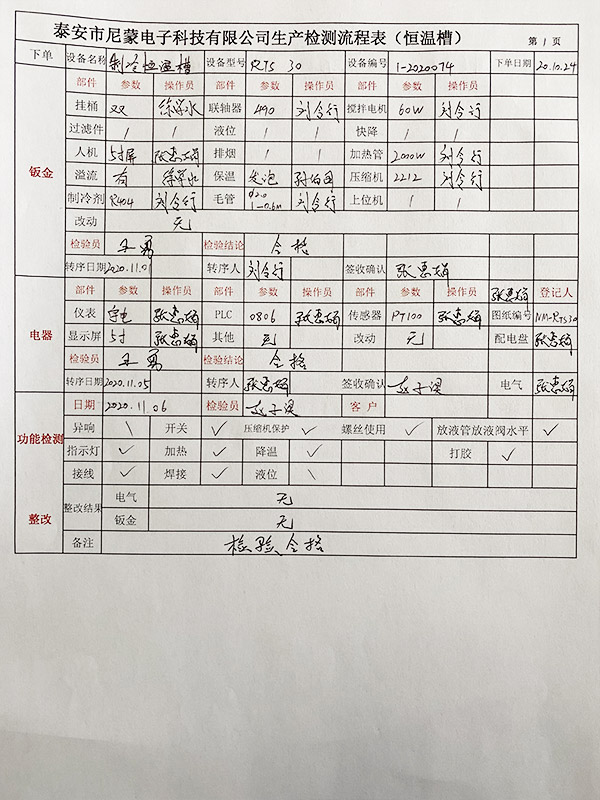 泰安市尼蒙电子科技有限公司生产检测流程表（恒温槽） 第 1 页
下单 设备名称 制冷恒温槽 设备型号 RTS 30 设备编号 1-2020074 下单日期 20.10.24
部件 参数 操作员 部件 参数 操作员 部件 参数 操作员
挂桶 双 联轴器 490 刘令行 搅拌电机 60W 刘令行
过滤件 / / 液位 / / 快降 / /
钣金 人机 5寸屏 张惠娟 排烟 / / 加热管 2000W 刘令行
溢流 有 保温 发泡 压缩机 2212 刘令行
制冷剂 R404 刘令行 毛管 φ2.0 1-0.6m 刘令行 上位机 / /
改动 无
检验员 王勇 检验结论 合格
转序日期 2020.11.01 转序人 刘令行 签收确认 张惠娟
部件 参数 操作员 部件 参数 操作员 部件 参数 操作员 张惠娟 登记人
仪表 宇电 张惠娟 PLC 0806 张惠娟 传感器 PT100 张惠娟 图纸编号 NM-RTS30
电器 显示屏 5寸 张惠娟 其他 无 改动 无 配电盘 张惠娟
检验员 王勇 检验结论 合格
转序日期 2020.11.05 转序人 张惠娟 签收确认 电气 张惠娟
日期 2020.11.06 检验员 客户
功能检测 异响 \ 开关 ✓ 压缩机保护 ✓ 螺丝使用 ✓ 放液管放液阀水平 ✓
指示灯 ✓ 加热 ✓ 降温 ✓ 打胶 ✓
接线 ✓ 焊接 ✓ 液位 \
整改 整改结果 电气 无
钣金 无
备注 检验合格